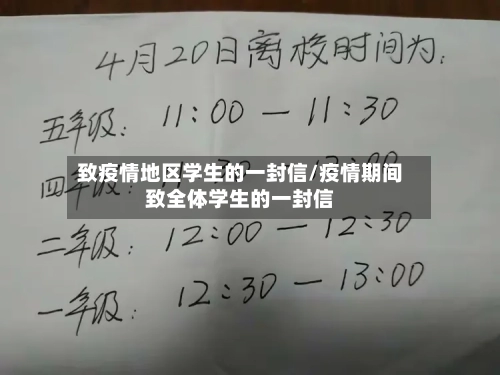 4月20日离校时间为:
五年级: 11:00 — 11:30
致疫情地区学生的一封信/疫情期间
致全体学生的一封信
四年级:
二年级: 12:00 — 12:30
一年级: 12:30 — 13:00